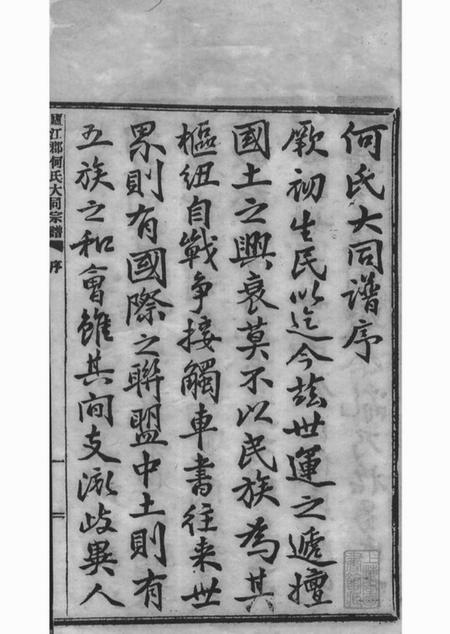 何氏大同譜序
厥初生民以迄今茲世運之遞嬗
國土之興衰莫不以民族為其
樞纽自戰爭接觸車書往来世
界則有國際之聯盟中土則有
五族之和會雖其间支派歧異人
廬江郡何氏大同宗譜
序
一